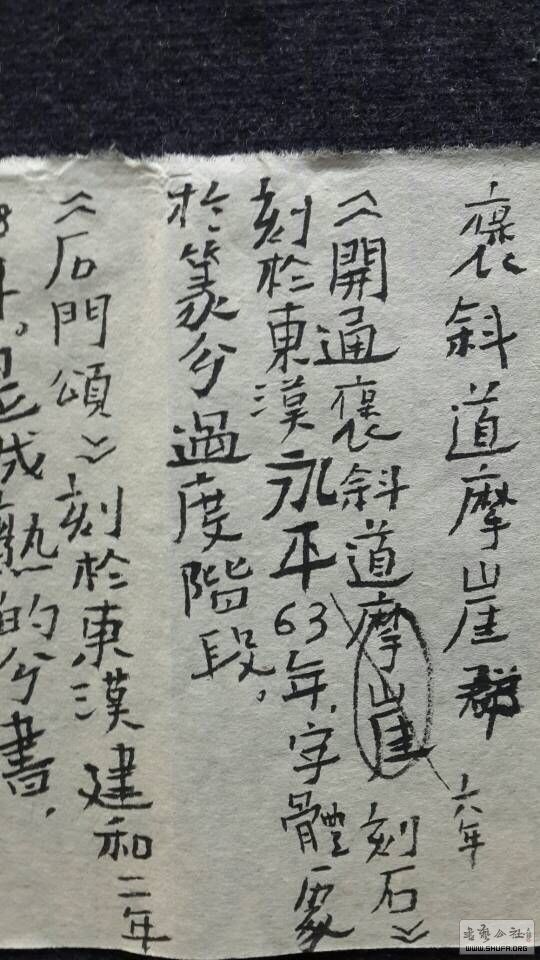 褒斜道摩崖群
六年
《開通褒斜道摩崖刻石》
刻於東漢永平63年，字體處
於篆分過度階段，
《石門頌》刻於東漢建和二年
8年。是成熟的分書，
書艺公社
WWW.SHUFA.ORG